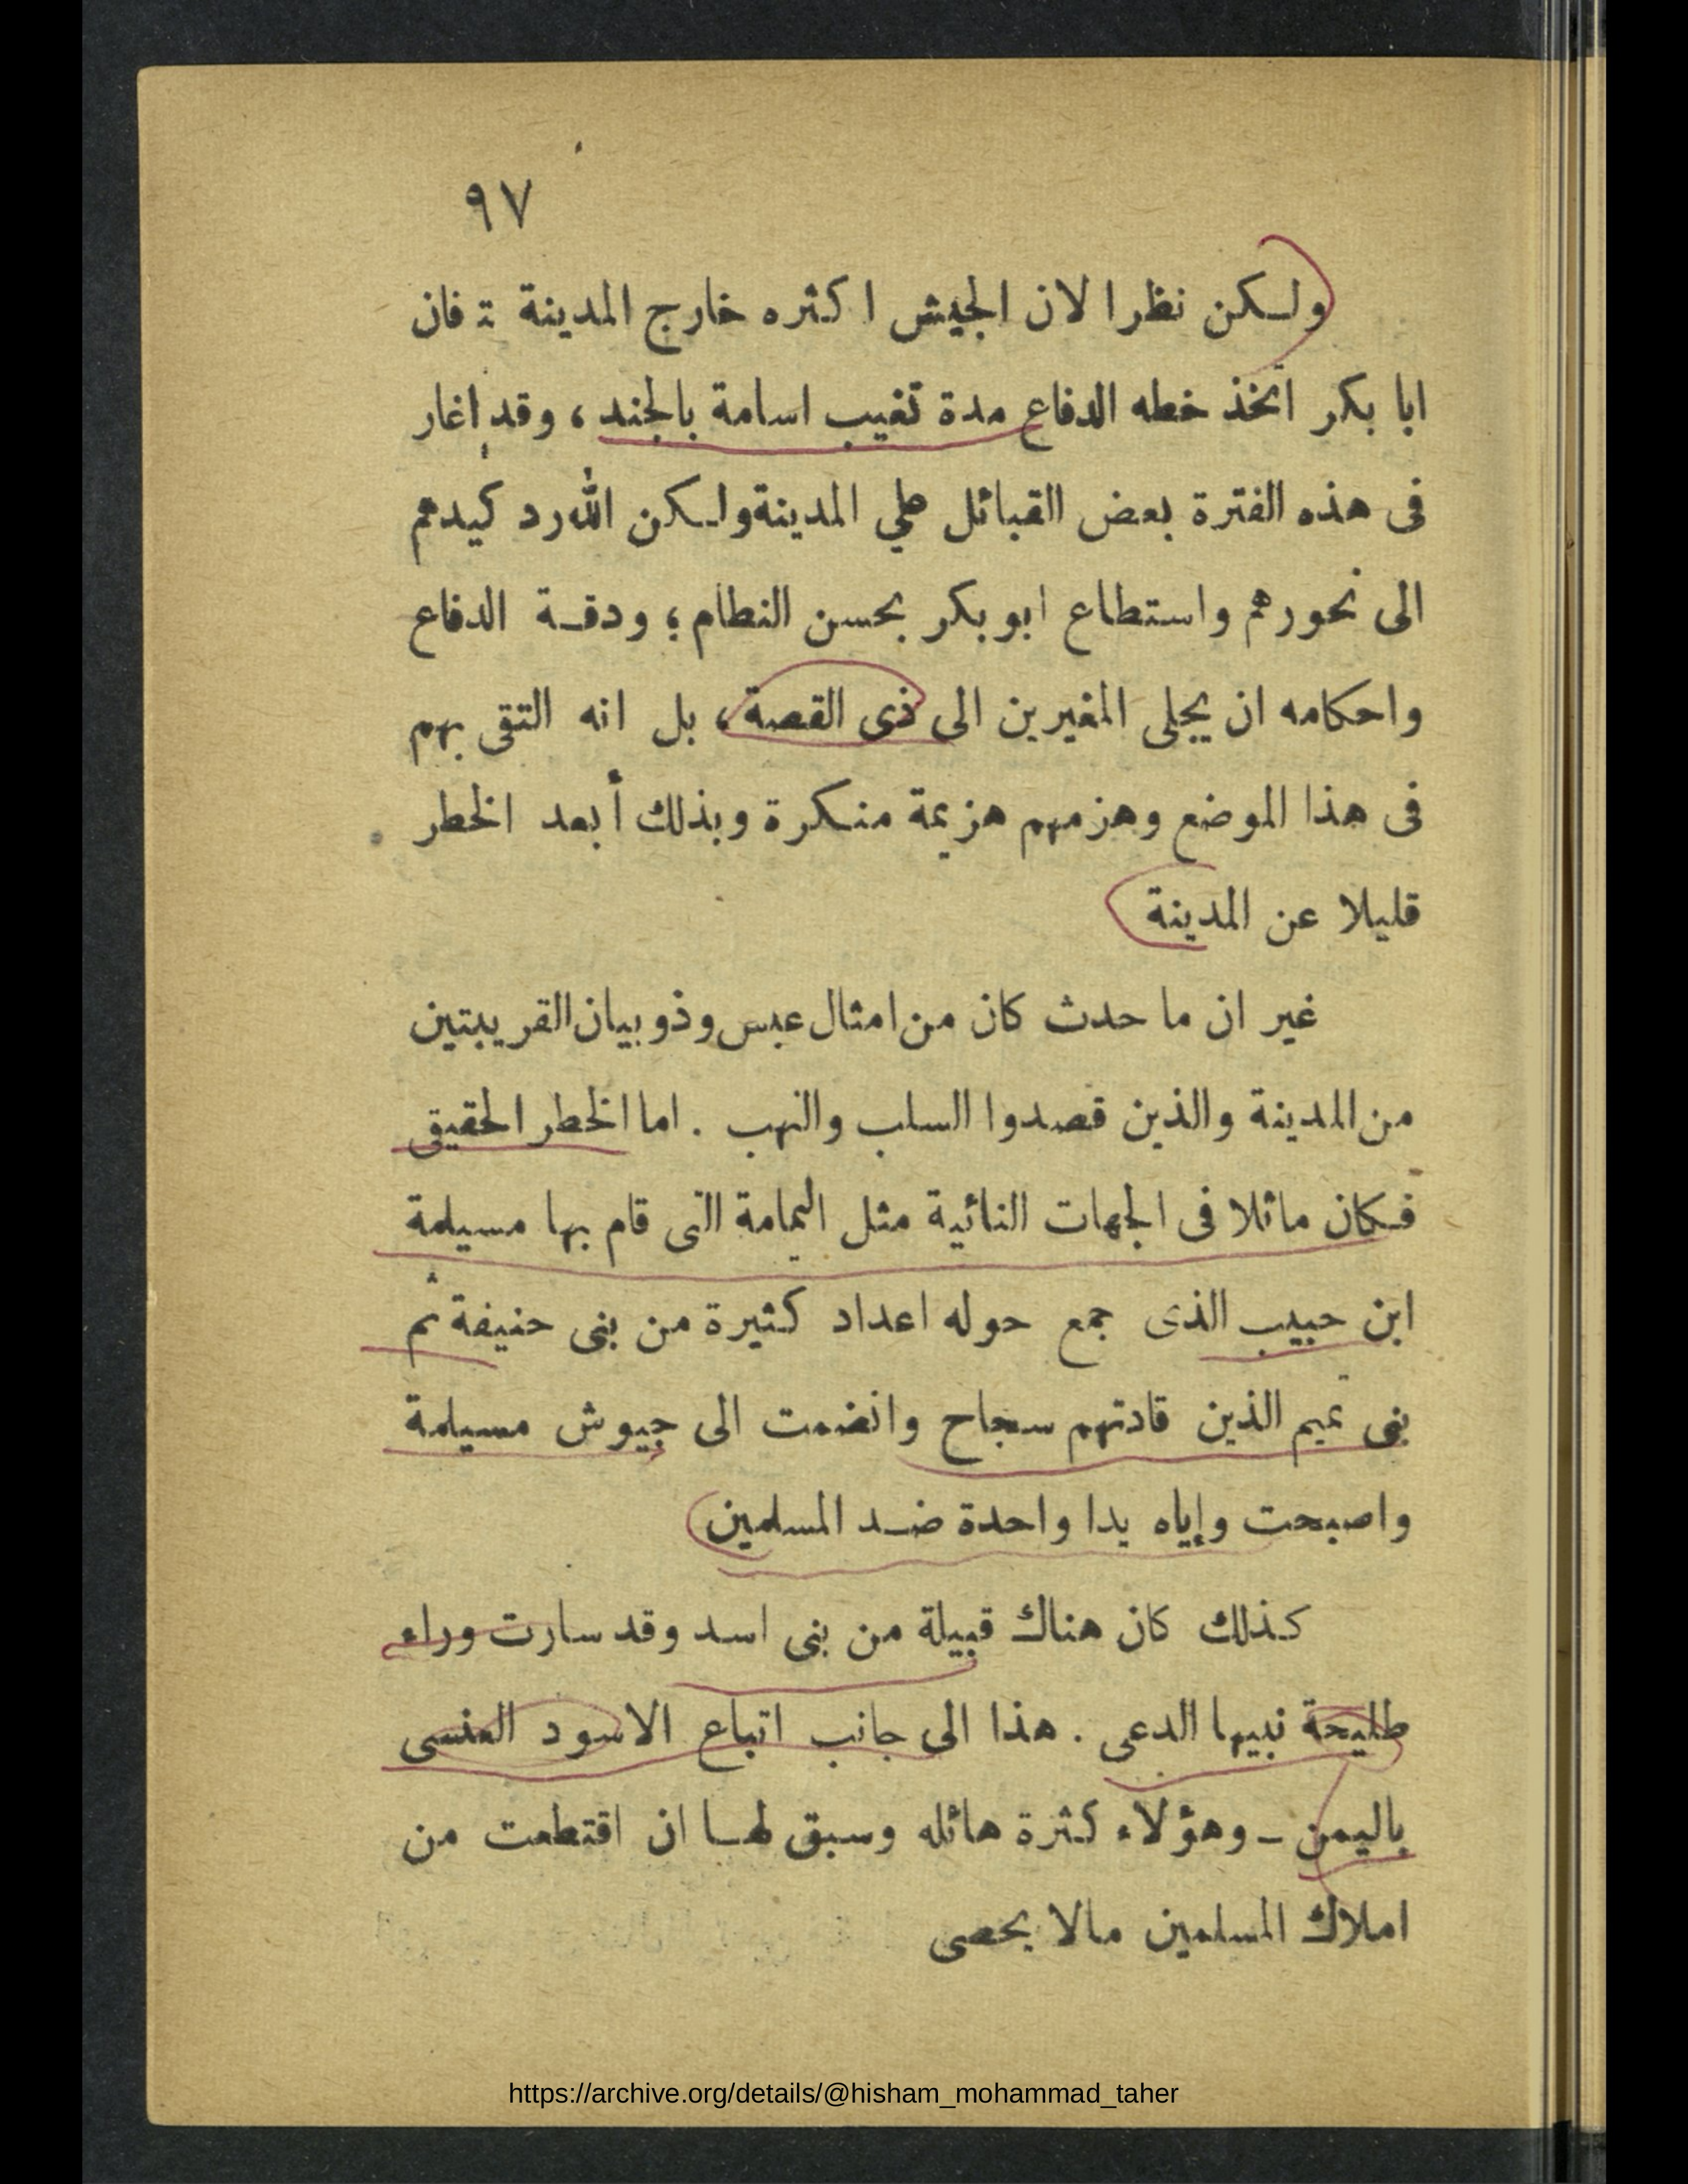 ٩٧
ولكن نظرا لان الجيش اكثره خارج المدينة فان
ابا بكر اتخذ خطه الدفاع مدة تغيب اسامة بالجند ، وقد اغار
فى هذه الفترة بعض القبائل علي المدينة ولكن الله رد كيدهم
الى نحورهم واستطاع ابو بكر بحسن النظام ؛ ودقة الدفاع
واحكامه ان يجلى المغيرين الى ذى القصة ، بل انه التقى بهم
فى هذا الموضع وهزمهم هزيمة منكرة وبذلك أبعد الخطر
قليلا عن المدينة
غير ان ما حدث كان من امثال عبس وذوبيان القريبتين
من المدينة والذين قصدوا السلب والنهب . اما الخطر الحقيقى
فكان ماثلا فى الجهات النائية مثل اليمامة التى قام بها مسيلمة
ابن حبيب الذى جمع حوله اعداد كثيرة من بنى حنيفة ثم
بنى تميم الذين قادتهم سجاح وانضمت الى جيوش مسيلمة
واصبحت وإياه يدا واحدة ضد المسلمين
كذلك كان هناك قبيلة من بنى اسد وقد سارت وراء
طليحة نبيها الدعى . هذا الى جانب اتباع الاسود العنسى
باليمن – وهؤلاء كثرة هائله وسبق لها ان اقتطعت من
املاك المسلمين مالا يحصى
https://archive.org/details/@hisham_mohammad_taher